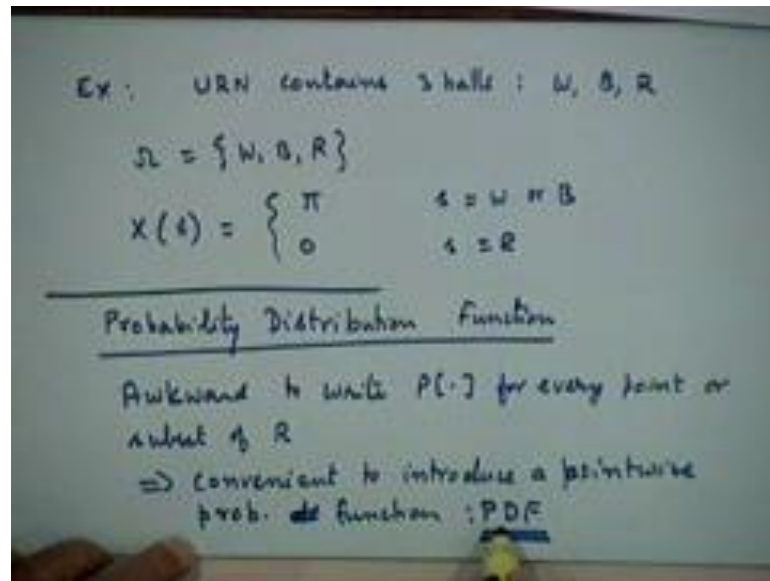 Ex: URN contains 3 balls : W, B, R
Ω = {W, B, R}
X(s) = { π s = W or B
0 s = R
Probability Distribution Function
Awkward to write P[·] for every point or
subset of R
⇒ convenient to introduce a pointwise
prob. function : PDF